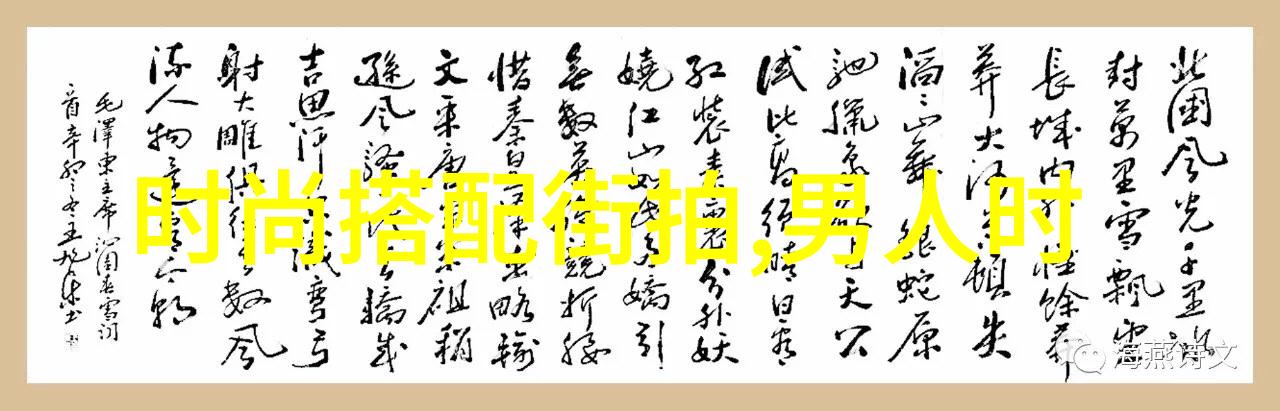 北國风光千里冰
封萬里雪飘望
長城内外惟餘莽
莽大河上下頓失
滔滔山舞银蛇原
驰腊象天公
试比高须晴日看
红装素裹分外妖
娆江山如此多娇引
無數英雄競折腰
惜秦皇略输
文采唐宗宋祖稍
遜风骚骄成
吉思汗识弯弓
射大雕俱往矣数风
流人物还看今朝
毛澤東主席沁園春雪詞
首辛卯之冬王书
时尚搭配街拍,男人时
海燕诗文